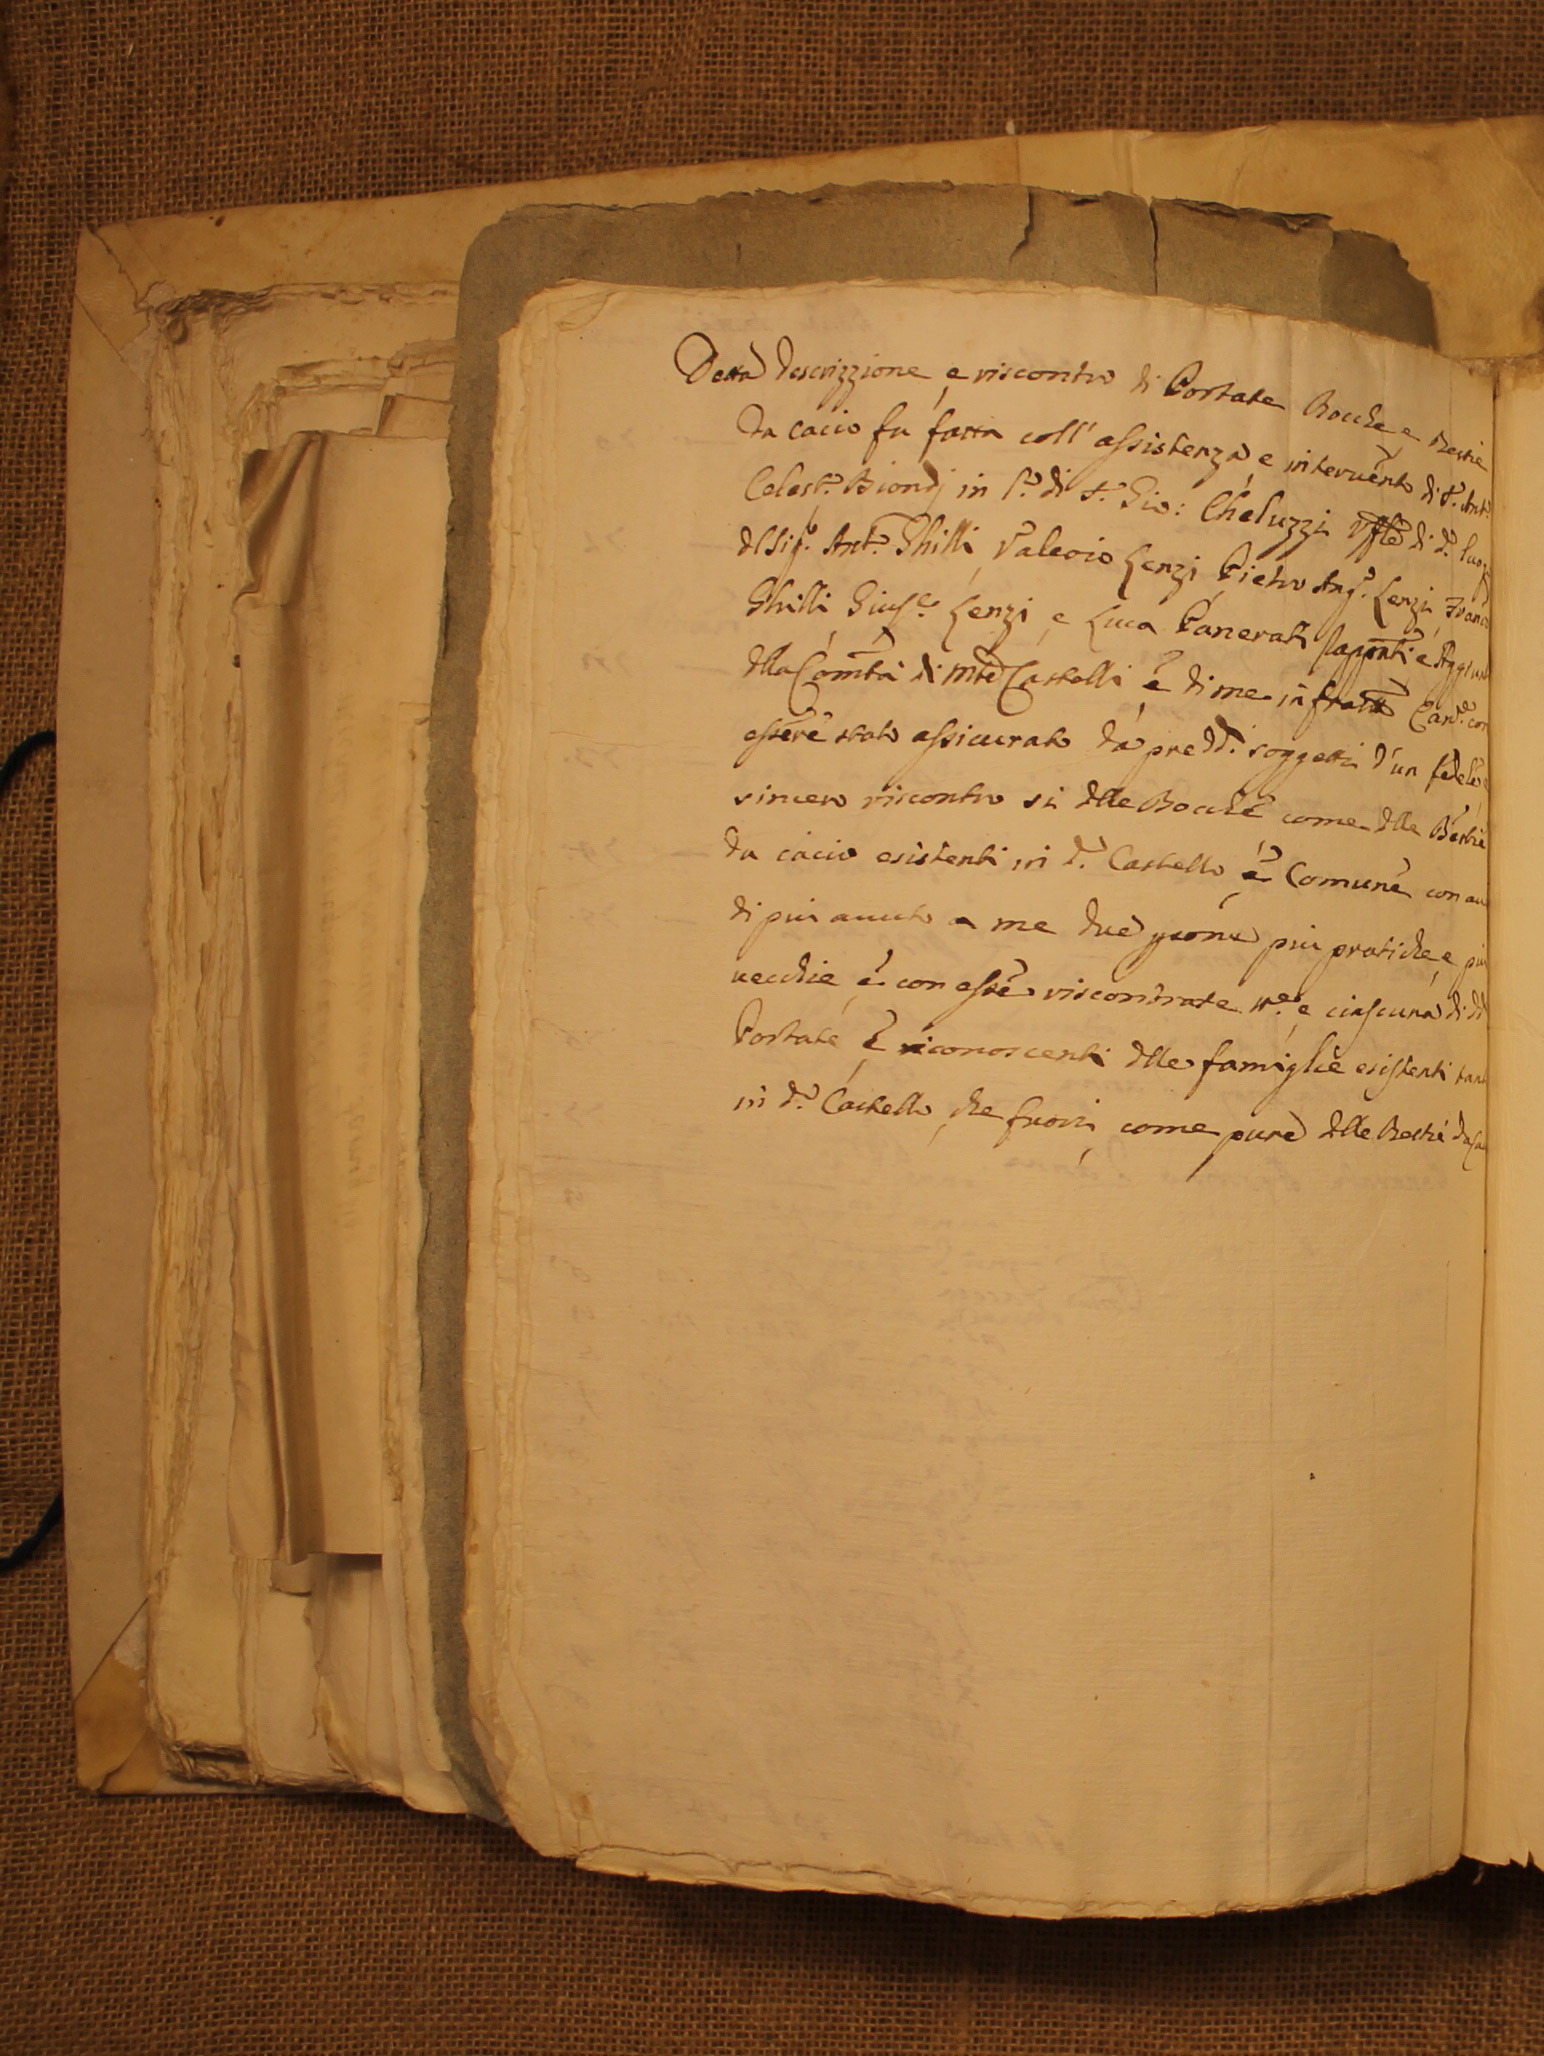 Detta descrizzione, e riscontro di Portate Bocche, e Bestie
da cacio fu fatta coll' assistenza, e intervento di S.r Ant.o
Celest.o Biondj in l.o di S.r Gio: Cheluzzi Uffle di d.o luogo
del Sig.r Ant.o Ghilli, Valerio Lenzi, Pietro Ang.o Lenzi, Franco
Ghilli, Gius.e Lenzi, e Luca Panerati e Aggiun
della Comtà di Mte Castelli, e di me infratto Canc.e con
essere stato assicurato da pred.di soggetti d'un fedele, e
sincero riscontro sì delle Bocche come delle Bestie
da cacio esistenti in d.o Castello, e Comune, con au
di più auuto a me due psone più pratiche, e più
uecchie, e con esse riscontrate e ciascuna di dd
Portate, e riconoscenti delle famiglie esistenti tant
in d.o Castello, che fuori, come pure delle Bestie da Ca